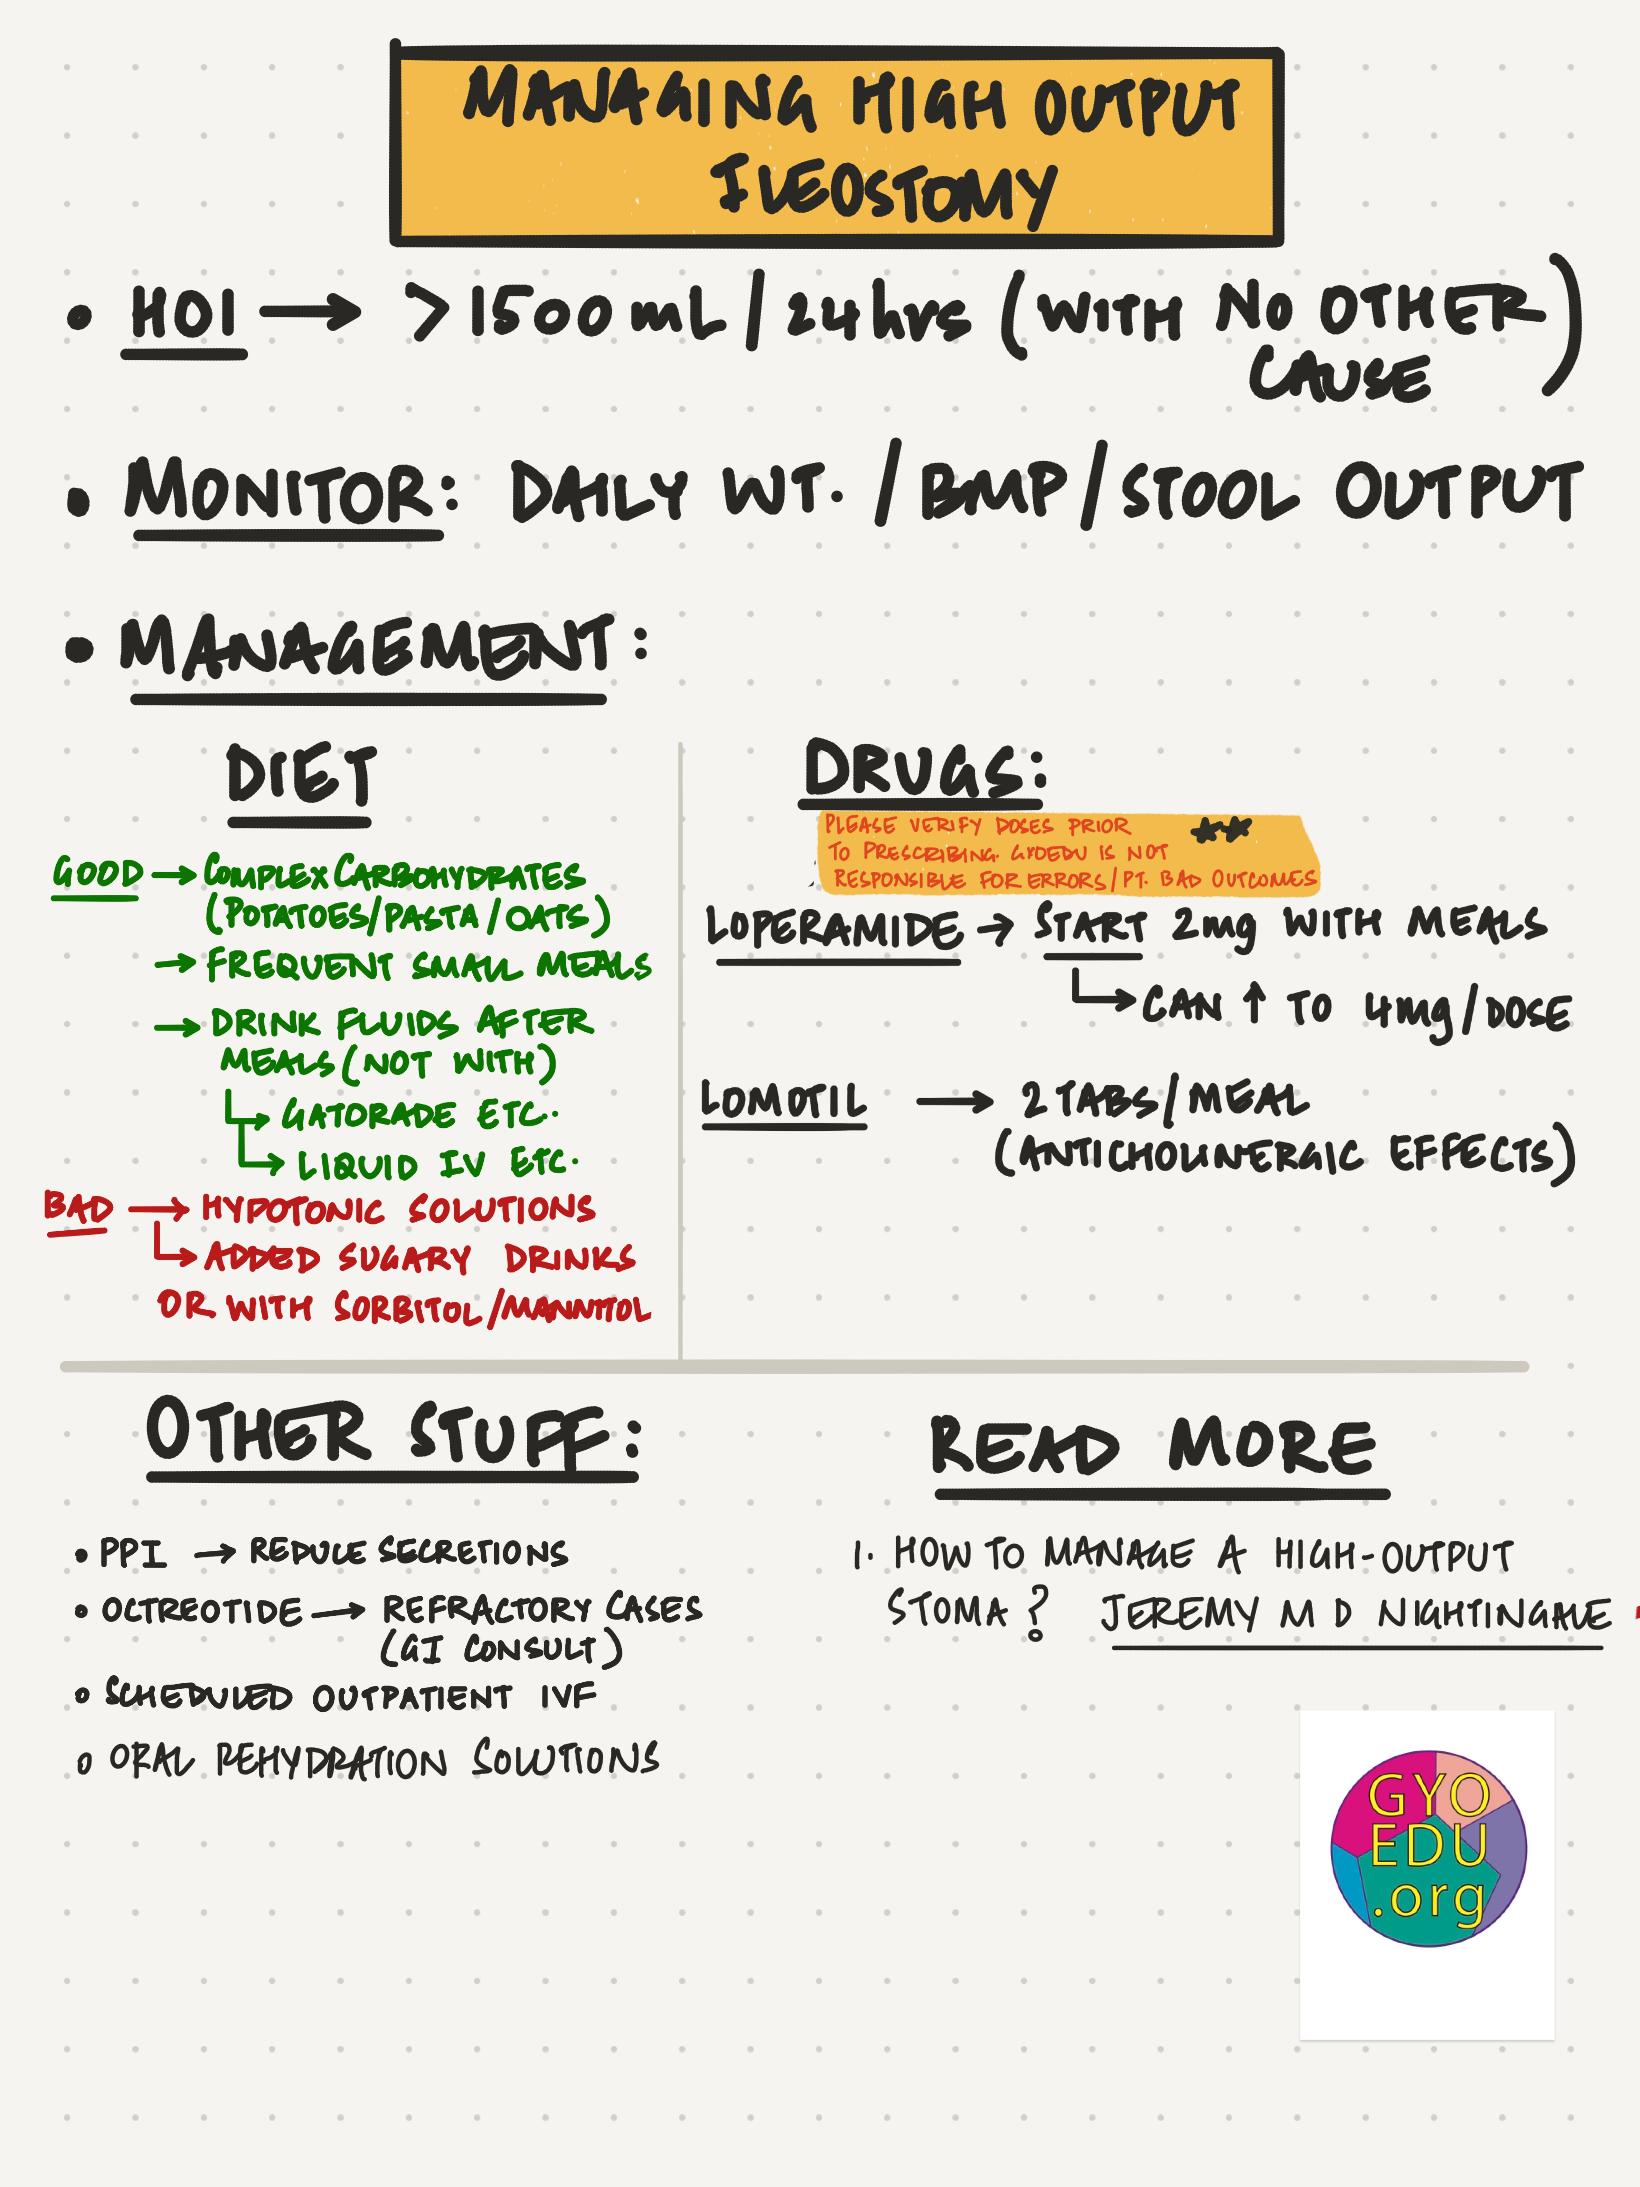 MANAGING HIGH OUTPUT
ILEOSTOMY
• HOI → >1500 mL/24hrs (WITH NO OTHER
CAUSE)
• MONITOR: DAILY WT. / BMP / STOOL OUTPUT
• MANAGEMENT:
DIET
GOOD → COMPLEX CARBOHYDRATES
(POTATOES/PASTA/OATS)
→ FREQUENT SMALL MEALS
→ DRINK FLUIDS AFTER
MEALS (NOT WITH)
↳ GATORADE ETC.
↳ LIQUID IV ETC.
BAD → HYPOTONIC SOLUTIONS
↳ ADDED SUGARY DRINKS
OR WITH SORBITOL/MANNITOL
DRUGS:
PLEASE VERIFY DOSES PRIOR ★★
TO PRESCRIBING. GYOEDU IS NOT
RESPONSIBLE FOR ERRORS/PT. BAD OUTCOMES
LOPERAMIDE → START 2mg WITH MEALS
↳ CAN ↑ TO 4mg/DOSE
LOMOTIL → 2 TABS/MEAL
(ANTICHOLINERGIC EFFECTS)
OTHER STUFF:
• PPI → REDUCE SECRETIONS
• OCTREOTIDE → REFRACTORY CASES
(GI CONSULT)
• SCHEDULED OUTPATIENT IVF
• ORAL REHYDRATION SOLUTIONS
READ MORE
1. HOW TO MANAGE A HIGH-OUTPUT
STOMA? JEREMY M D NIGHTINGALE
GYO
EDU
.org